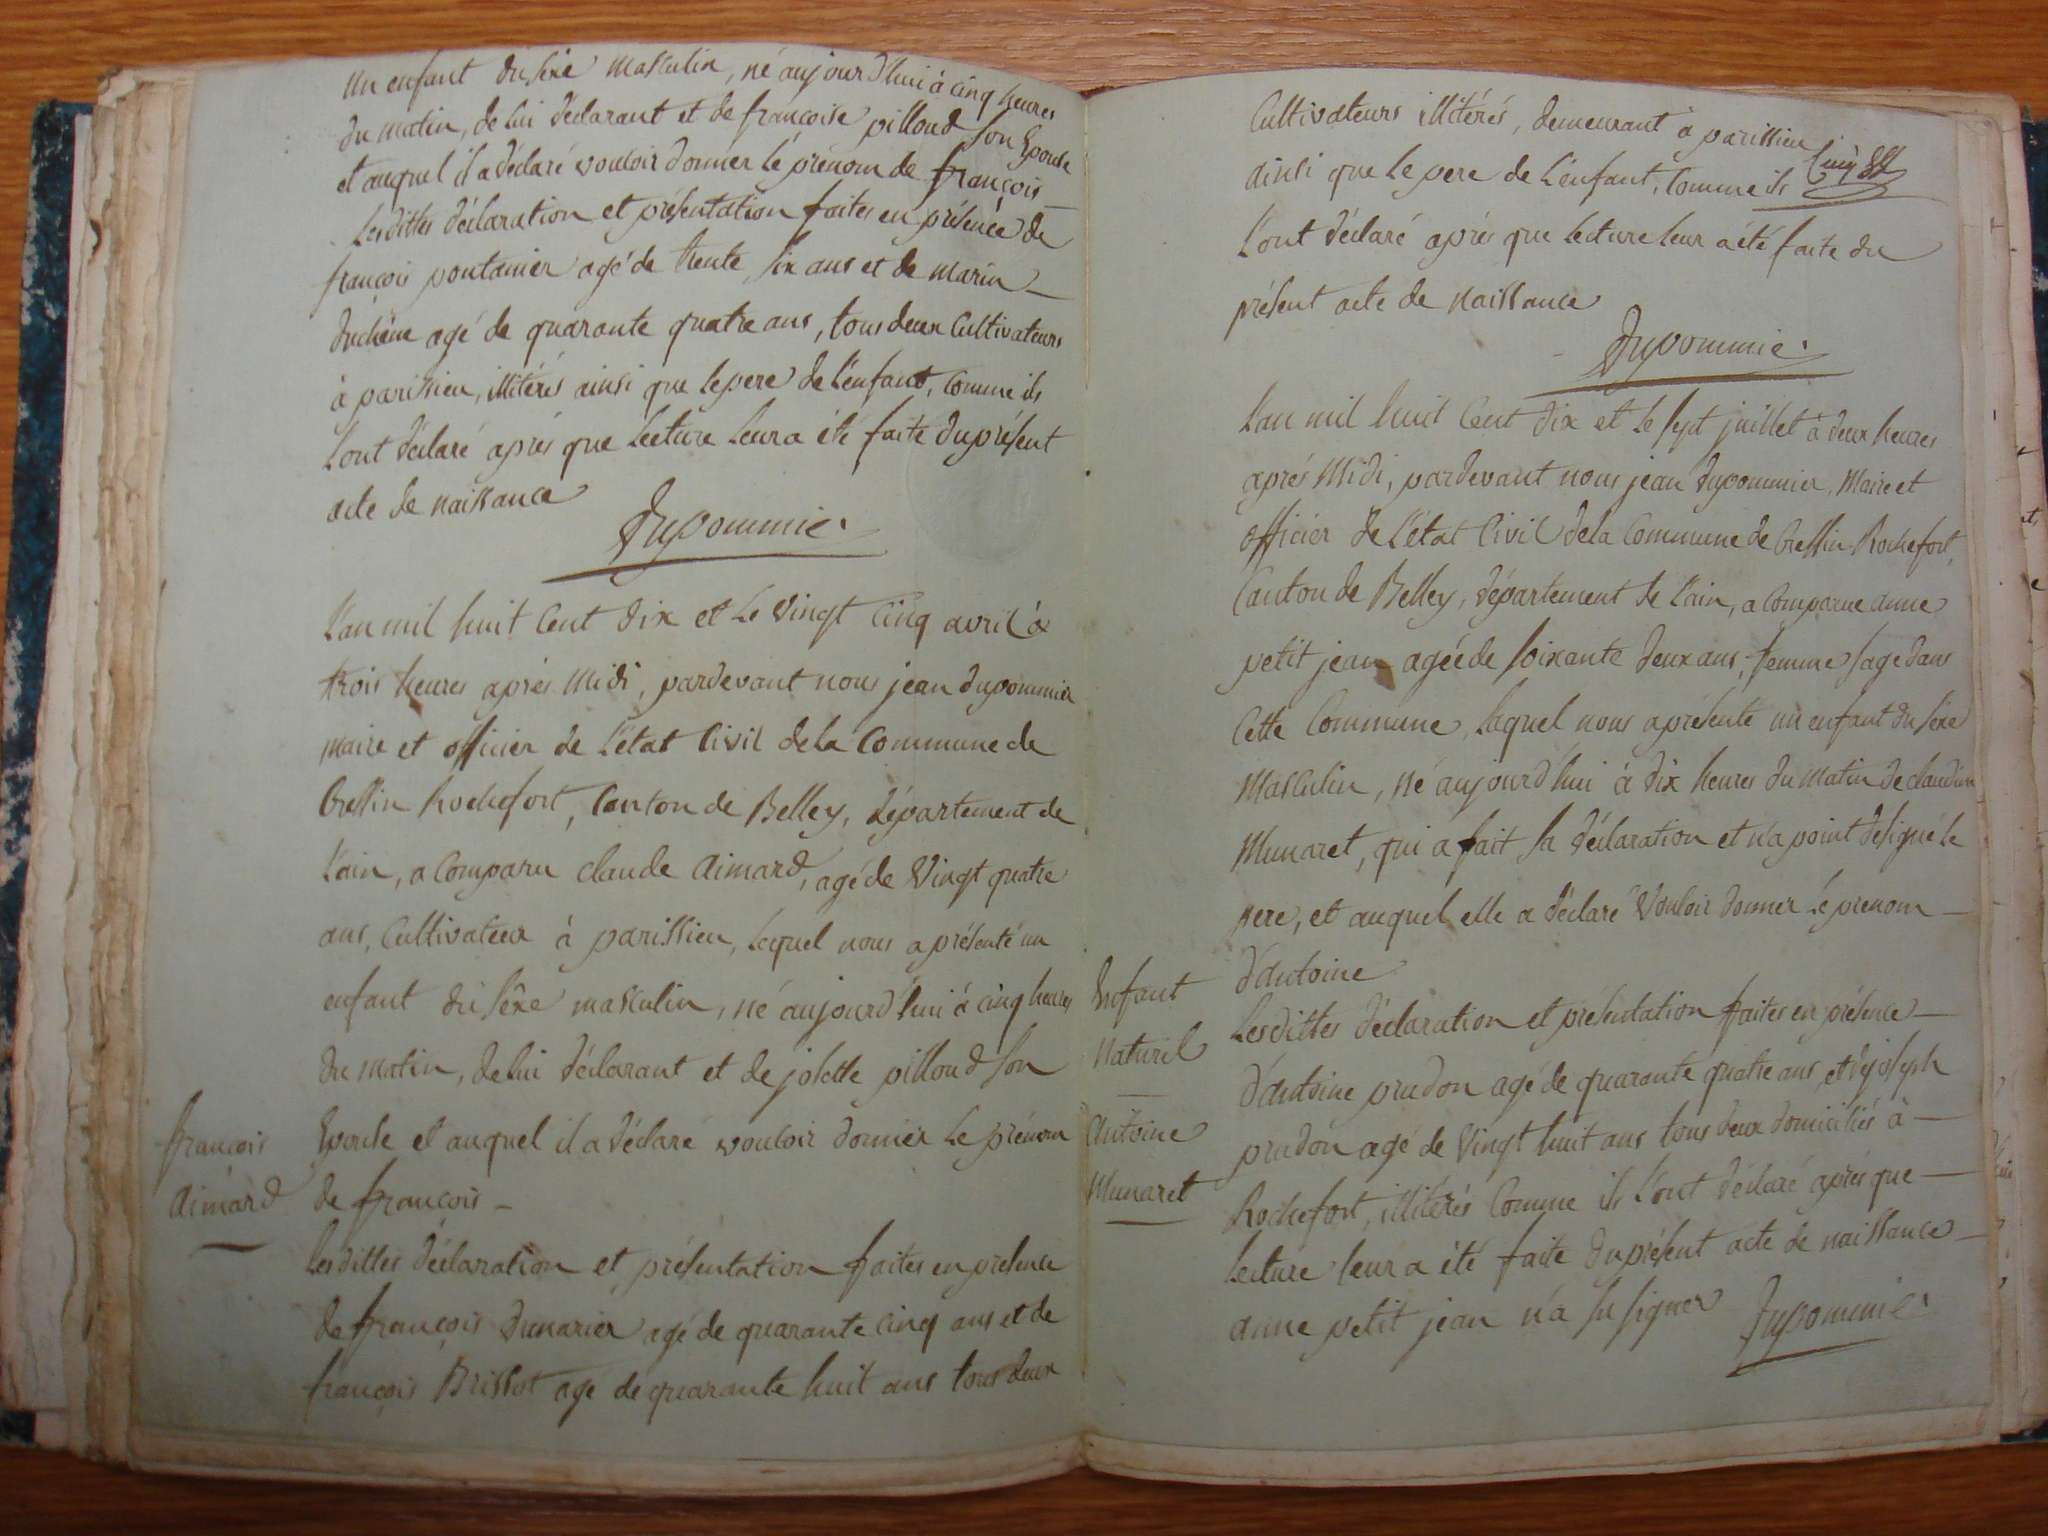 un enfant du sèxe masculin, né aujourd'hui à cinq heures
du matin, de lui déclarant et de françoise pilloud son Epouse
et auquel il a déclaré vouloir donner le prénom de françois
Lesdittes déclaration et présentation faites en présence de
françois pontanier agé de trente six ans et de marin
duchêne agé de quarante quatre ans, tous deux Cultivateurs
à parissieu, illitérés ainsi que le pere de l'enfant, comme ils
l'ont déclaré après que lecture leur a été faite du présent
acte de naissance
Dupommier
L'an mil huit cent dix et le vingt cinq avril à
trois heures après midi, pardevant nous jean dupommier
maire et officier de l'état Civil de la Commune de
Cressin Rochefort, Canton de Belley, département de
l'ain, a comparu claude aimard, agé de vingt quatre
ans, Cultivateur à parissieu, lequel nous a présenté un
enfant du sèxe masculin, né aujourd'hui à cinq heures
du matin, de lui déclarant et de josette pilloud son
françois
aimard
Epouse et auquel il a déclaré vouloir donner le prénom
de françois
Lesdittes déclaration et présentation faites en présence
de françois dumarier agé de quarante cinq ans et de
françois Brissot agé de quarante huit ans tous deux
Cultivateurs illitérés, demeurant à parissieu
ainsi que le pere de l'enfant, comme ils
l'ont déclaré après que lecture leur a été faite du
présent acte de naissance
Dupommier
L'an mil huit cent dix et le sept juillet à deux heures
après midi, pardevant nous jean dupommier, Maire et
officier de l'état Civil de la Commune de Cressin-Rochefort,
Canton de Belley, département de l'ain, a comparue anne
petit jean agée de soixante deux ans, femme sage dans
cette Commune, laquel nous a présenté un enfant du sèxe
masculin, né aujourd'hui à dix heures du matin de claudine
Munaret, qui a fait sa déclaration et n'a point désigné le
pere, et auquel elle a déclaré vouloir donner le prenom
Enfant
Naturel
Antoine
Munaret
d'antoine
Lesdittes déclaration et présentation faites en présence
d'antoine prudon agé de quarante quatre ans, et de joseph
prudon agé de vingt huit ans tous deux domiciliés à
Rochefort, illitérés comme ils l'ont déclaré après que
lecture leur a été faite du présent acte de naissance
anne petit jean n'a su signer Dupommier